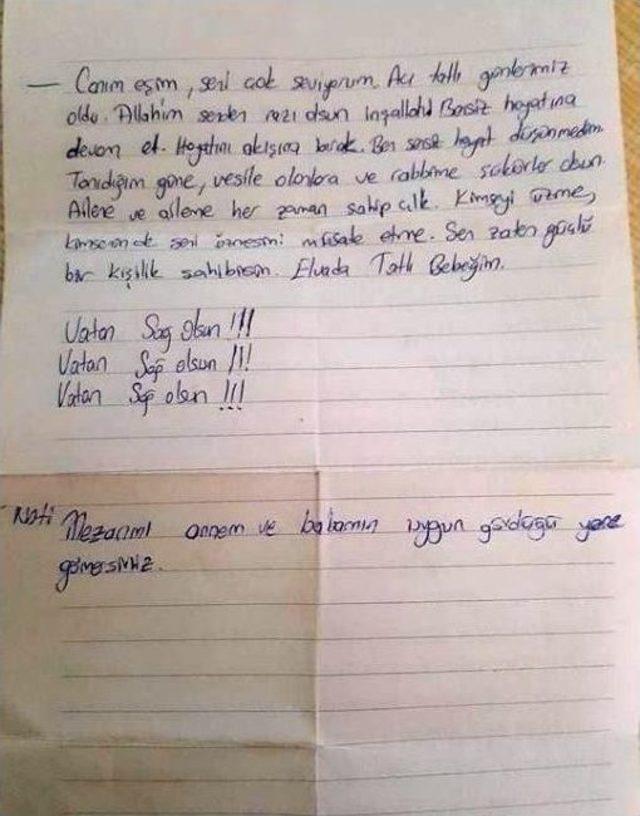 — Canım eşim, seni çok seviyorum. Acı tatlı günlerimiz
oldu. Allah'ım senden razı olsun inşallah! Bensiz hayatına
devam et. Hayatını akışına bırak. Ben sensiz hayat düşünmedim.
Tanıdığım güne, vesile olanlara ve rabbime şükürler olsun.
Ailene ve aileme her zaman sahip çık. Kimseyi üzme,
kimsenin de seni üzmesini müsade etme. Sen zaten güçlü
bir kişilik sahibisin. Elveda Tatlı Bebeğim.
Vatan Sağ Olsun !!!
Vatan Sağ olsun !!!
Vatan Sağ olsun !!!
Not: Mezarımı annem ve babamın uygun gördüğü yere
gömersiniz.